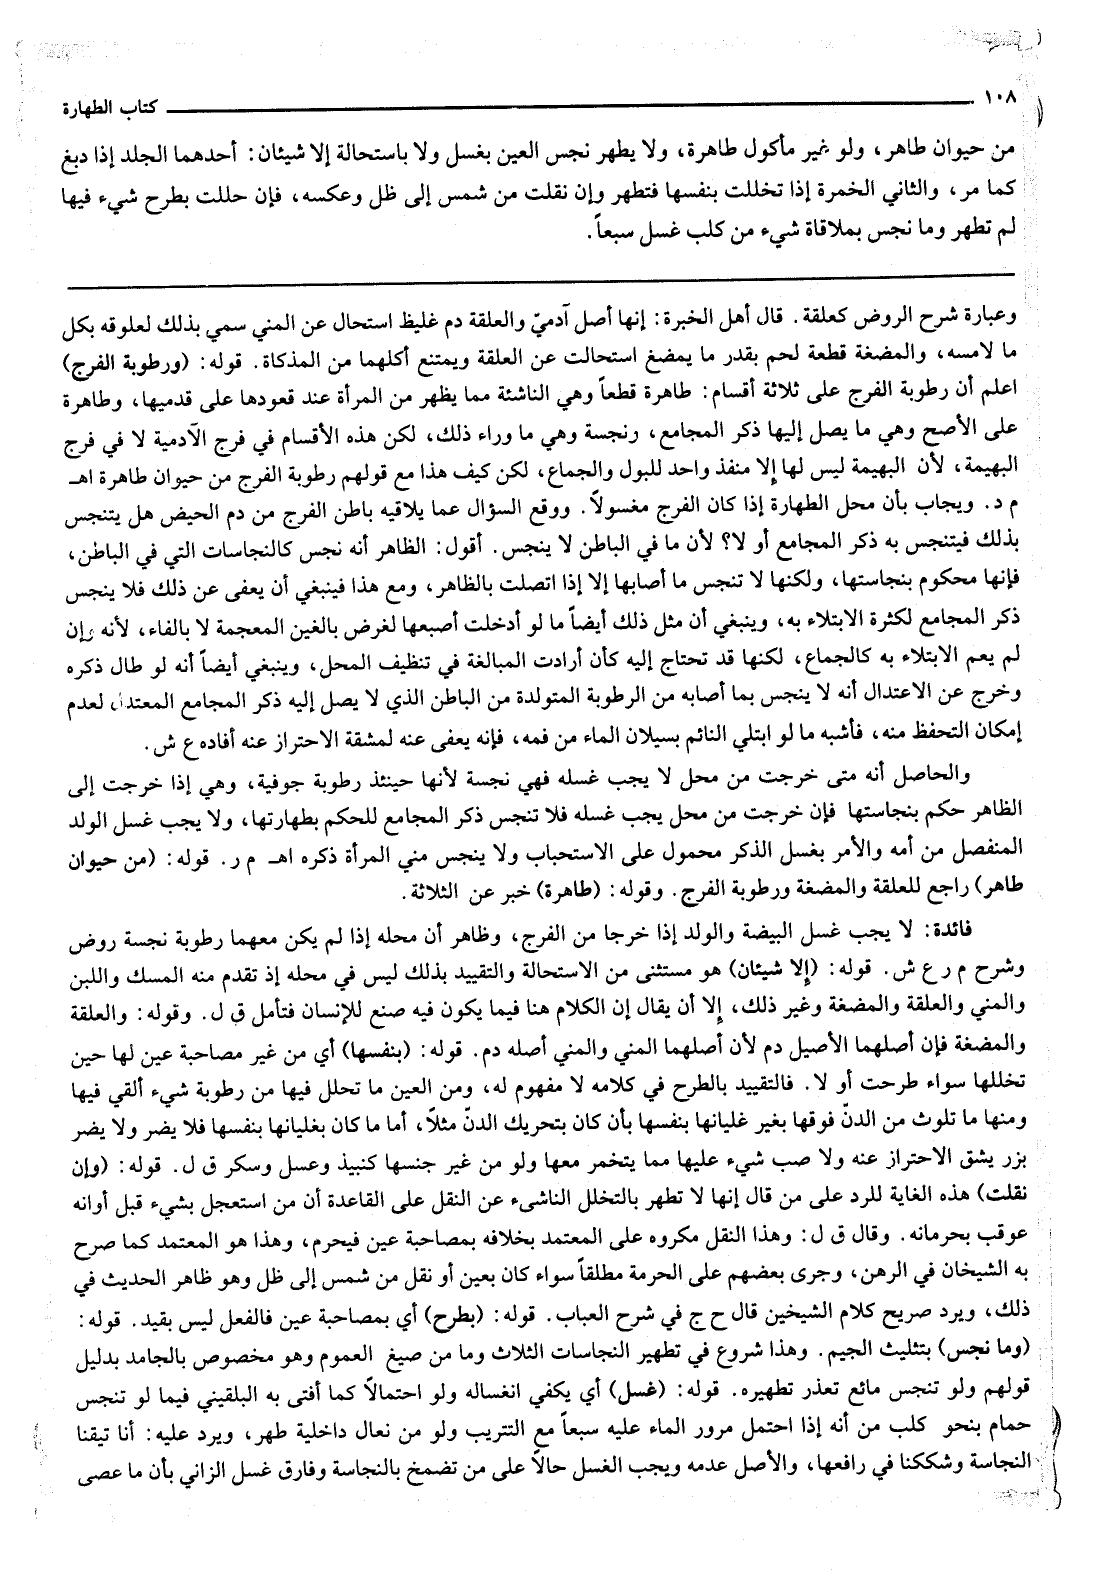 ١٠٨ كتاب الطهارة
من حيوان طاهر، ولو غير مأكول طاهرة، ولا يطهر نجس العين بغسل ولا باستحالة إلا شيئان: أحدهما الجلد إذا دبغ
كما مر، والثاني الخمرة إذا تخللت بنفسها فتطهر وإن نقلت من شمس إلى ظل وعكسه، فإن خللت بطرح شيء فيها
لم تطهر وما نجس بملاقاة شيء من كلب غسل سبعاً.
وعبارة شرح الروض كعلقة. قال أهل الخبرة: إنها أصل آدميّ والعلقة دم غليظ استحال عن المني سمي بذلك لعلوقه بكل
ما لامسه، والمضغة قطعة لحم بقدر ما يمضغ استحالت عن العلقة ويمتنع أكلهما من المذكاة. قوله: (ورطوبة الفرج)
اعلم أن رطوبة الفرج على ثلاثة أقسام: طاهرة قطعاً وهي الناشئة مما يظهر من المرأة عند قعودها على قدميها، وطاهرة
على الأصح وهي ما يصل إليها ذكر المجامع، ونجسة وهي ما وراء ذلك، لكن هذه الأقسام في فرج الآدمية لا في فرج
البهيمة، لأن البهيمة ليس لها إلا منفذ واحد للبول والجماع، لكن كيف هذا مع قولهم رطوبة الفرج من حيوان طاهرة اهـ
م د. ويجاب بأن محل الطهارة إذا كان الفرج مغسولاً. ووقع السؤال عما يلاقيه باطن الفرج من دم الحيض هل يتنجس
بذلك فيتنجس به ذكر المجامع أو لا؟ لأن ما في الباطن لا ينجس. أقول: الظاهر أنه نجس كالنجاسات التي في الباطن،
فإنها محكوم بنجاستها، ولكنها لا تنجس ما أصابها إلا إذا اتصلت بالظاهر، ومع هذا فينبغي أن يعفى عن ذلك فلا ينجس
ذكر المجامع لكثرة الابتلاء به، وينبغي أن مثل ذلك أيضاً ما لو أدخلت أصبعها لغرض بالغين المعجمة لا بالفاء، لأنه وإن
لم يعم الابتلاء به كالجماع، لكنها قد تحتاج إليه كأن أرادت المبالغة في تنظيف المحل، وينبغي أيضاً أنه لو طال ذكره
وخرج عن الاعتدال أنه لا ينجس بما أصابه من الرطوبة المتولدة من الباطن الذي لا يصل إليه ذكر المجامع المعتدل لعدم
إمكان التحفظ منه، فأشبه ما لو ابتلي النائم بسيلان الماء من فمه، فإنه يعفى عنه لمشقة الاحتراز عنه أفاده ع ش.
والحاصل أنه متى خرجت من محل لا يجب غسله فهي نجسة لأنها حينئذ رطوبة جوفية، وهي إذا خرجت إلى
الظاهر حكم بنجاستها فإن خرجت من محل يجب غسله فلا تنجس ذكر المجامع للحكم بطهارتها، ولا يجب غسل الولد
المنفصل من أمه والأمر بغسل الذكر محمول على الاستحباب ولا ينجس مني المرأة ذكره اهـ م ر. قوله: (من حيوان
طاهر) راجع للعلقة والمضغة ورطوبة الفرج. وقوله: (طاهرة) خبر عن الثلاثة.
فائدة: لا يجب غسل البيضة والولد إذا خرجا من الفرج، وظاهر أن محله إذا لم يكن معهما رطوبة نجسة روض
وشرح م ر ع ش. قوله: (إلا شيئان) هو مستثنى من الاستحالة والتقييد بذلك ليس في محله إذ تقدم منه المسك واللبن
والمني والعلقة والمضغة وغير ذلك، إلا أن يقال إن الكلام هنا فيما يكون فيه صنع للإنسان فتأمل ق ل. وقوله: والعلقة
والمضغة فإن أصلهما الأصيل دم لأن أصلهما المني والمني أصله دم. قوله: (بنفسها) أي من غير مصاحبة عين لها حين
تخللها سواء طرحت أو لا. فالتقييد بالطرح في كلامه لا مفهوم له، ومن العين ما تحلل فيها من رطوبة شيء ألقي فيها
ومنها ما تلوث من الدنّ فوقها بغير غليانها بنفسها بأن كان بتحريك الدنّ مثلاً، أما ما كان بغليانها بنفسها فلا يضر ولا يضر
بزر يشق الاحتراز عنه ولا صب شيء عليها مما يتخمر معها ولو من غير جنسها كنبيذ وعسل وسكر ق ل. قوله: (وإن
نقلت) هذه الغاية للرد على من قال إنها لا تطهر بالتخلل الناشىء عن النقل على القاعدة أن من استعجل بشيء قبل أوانه
عوقب بحرمانه. وقال ق ل: وهذا النقل مكروه على المعتمد بخلافه بمصاحبة عين فيحرم، وهذا هو المعتمد كما صرح
به الشيخان في الرهن، وجرى بعضهم على الحرمة مطلقاً سواء كان بعين أو نقل من شمس إلى ظل وهو ظاهر الحديث في
ذلك، ويرد صريح كلام الشيخين قال ح ج في شرح العباب. قوله: (بطرح) أي بمصاحبة عين فالفعل ليس بقيد. قوله:
(وما نجس) بتثليث الجيم. وهذا شروع في تطهير النجاسات الثلاث وما من صيغ العموم وهو مخصوص بالجامد بدليل
قولهم ولو تنجس مائع تعذر تطهيره. قوله: (غسل) أي يكفي انغساله ولو احتمالاً كما أفتى به البلقيني فيما لو تنجس
حمام بنحو كلب من أنه إذا احتمل مرور الماء عليه سبعاً مع التتريب ولو من نعال داخلية طهر، ويرد عليه: أنا تيقنا
النجاسة وشككنا في رافعها، والأصل عدمه ويجب الغسل حالاً على من تضمخ بالنجاسة وفارق غسل الزاني بأن ما عصى